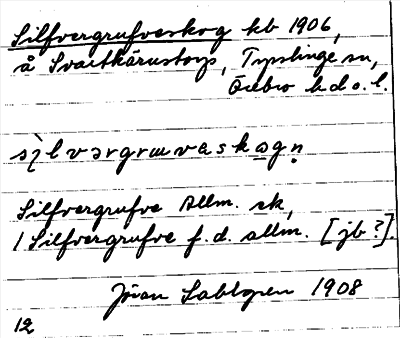 Silfvergrufveskog hb 1906,
å Svartkärnstorp, Tysslinge sn,
Örebro hd o. l.
Silfvergrufve Allm. sk,
/ Silfvergrufve f. d. allm. [jb ?].
Jöran Sahlgren 1908
12